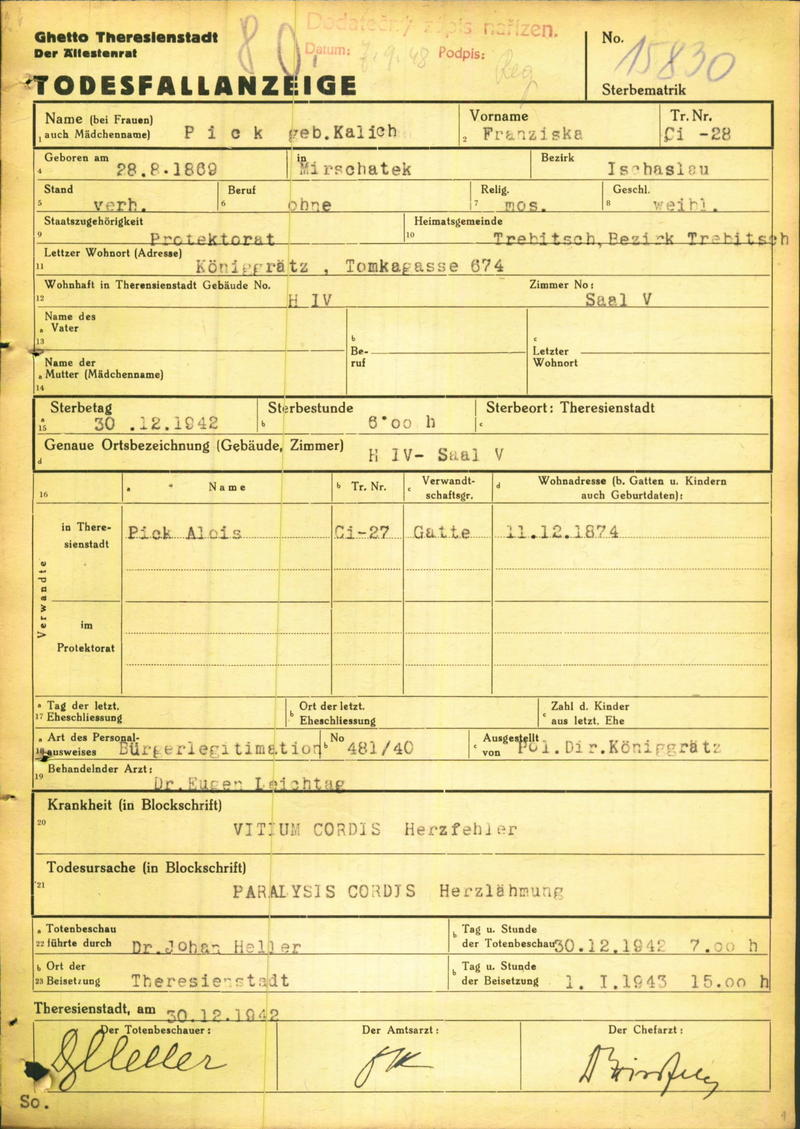 Ghetto Theresienstadt
Der Ältestenrat
TODESFALLANZEIGE
80
Dodatečný zápis nařízen.
Datum: 7.9.48 Podpis:
No. 15830
Sterbematrik
Name (bei Frauen)
1 auch Mädchenname) Pick geb.Kalich
Vorname
2 Franziska
Tr. Nr.
Ci -28
Geboren am
4 28.8.1869
in Mirschatek
Bezirk
Tschaslau
Stand
5 verh.
Beruf
6 ohne
Relig.
7 mos.
Geschl.
8 weibl.
Staatszugehörigkeit
9 Protektorat
Heimatsgemeinde
10 Trebitsch, Bezirk Trebitsch
Lettzer Wohnort (Adresse)
11 Königgrätz , Tomkagasse 674
Wohnhaft in Therensienstadt Gebäude No.
12 H IV
Zimmer No:
Saal V
Name des
a Vater
13
Name der
a Mutter (Mädchenname)
14
b
Be-
ruf
c
Letzter
Wohnort
Sterbetag
a
15 30 .12.1942
Sterbestunde
b 6·00 h
Sterbeort: Theresienstadt
c
Genaue Ortsbezeichnung (Gebäude, Zimmer)
d H IV- Saal V
16
a Name
b Tr. Nr.
c Verwandt-
schaftsgr.
d Wohnadresse (b. Gatten u. Kindern
auch Geburtdaten):
Verwandte
in There-
sienstadt
Pick Alois Ci-27 Gatte 11.12.1874
im
Protektorat
a Tag der letzt.
17 Eheschliessung
b Ort der letzt.
Eheschliessung
c Zahl d. Kinder
aus letzt. Ehe
a Art des Personal-
18 ausweises Bürgerlegitimation
b No 481/40
c Ausgestellt
von Pol.Dir.Königgrätz
Behandelnder Arzt:
19 Dr.Eugen Leichtag
Krankheit (in Blockschrift)
20 VITIUM CORDIS Herzfehler
Todesursache (in Blockschrift)
21 PARALYSIS CORDIS Herzlähmung
a Totenbeschau
22 führte durch Dr.Johan Heller
b Tag u. Stunde
der Totenbeschau 30.12.1942 7.00 h
b Ort der
23 Beisetzung Theresienstadt
b Tag u. Stunde
der Beisetzung 1. I.1943 15.00 h
Theresienstadt, am 30.12.1942
Der Totenbeschauer:
Der Amtsarzt:
Der Chefarzt:
Heller
So.